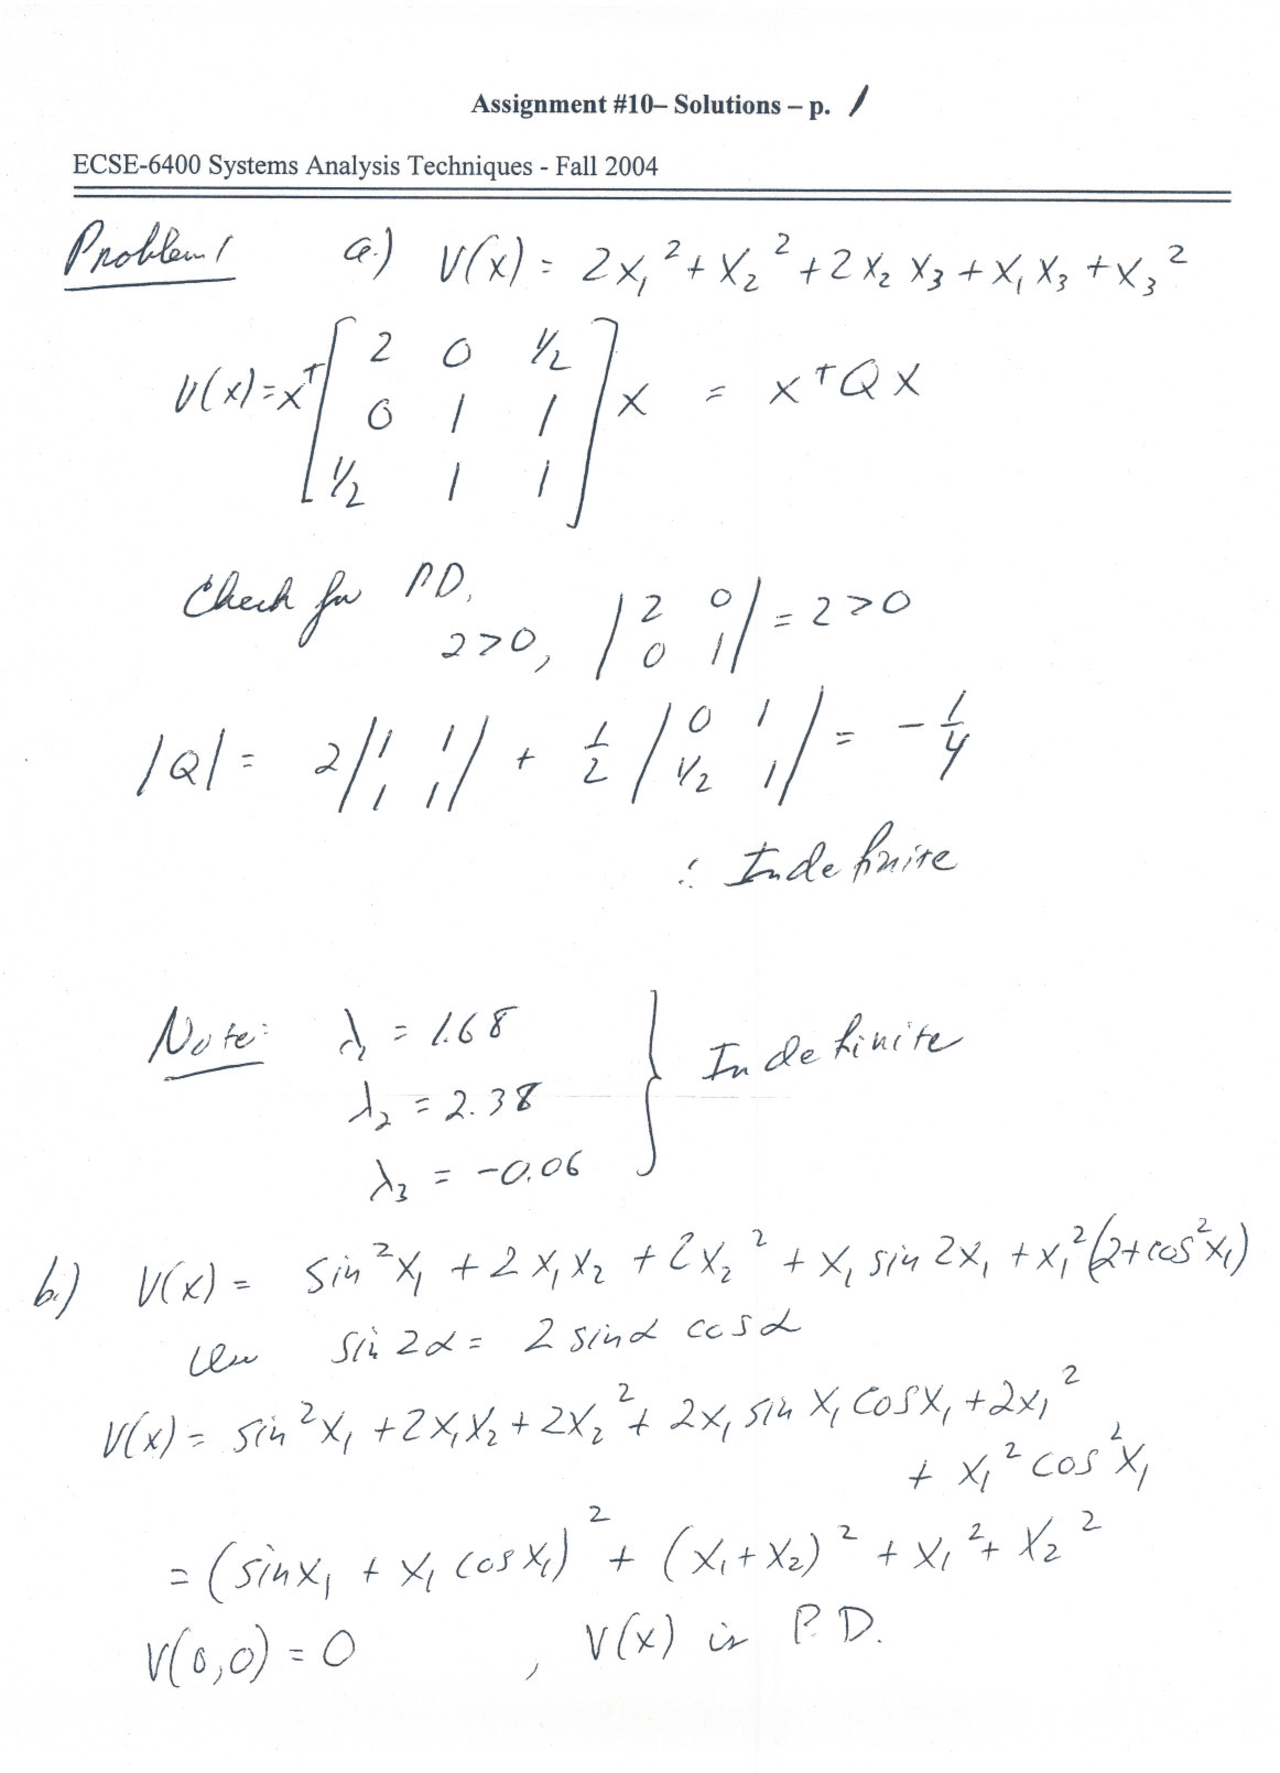 Assignment #10– Solutions – p. 1
ECSE-6400 Systems Analysis Techniques - Fall 2004
Problem 1 a.) V(x) = 2x₁² + x₂² + 2x₂x₃ + x₁x₃ + x₃²
V(x) = xᵀ [ 2 0 1/2 ; 0 1 1 ; 1/2 1 1 ] x = xᵀQx
Check for P.D.
2>0, | 2 0 ; 0 1 | = 2>0
|Q| = 2 | 1 1 ; 1 1 | + 1/2 | 0 1 ; 1/2 1 | = -1/4
∴ Indefinite
Note: λ₁ = 1.68
λ₂ = 2.38 } Indefinite
λ₃ = -0.06
b.) V(x) = sin²x₁ + 2x₁x₂ + 2x₂² + x₁ sin 2x₁ + x₁²(2+cos²x₁)
Use sin 2α = 2 sinα cosα
V(x) = sin²x₁ + 2x₁x₂ + 2x₂² + 2x₁ sin x₁ cosx₁ + 2x₁²
+ x₁² cos²x₁
= (sinx₁ + x₁ cosx₁)² + (x₁+x₂)² + x₁² + x₂²
V(0,0) = 0 , V(x) is P.D.